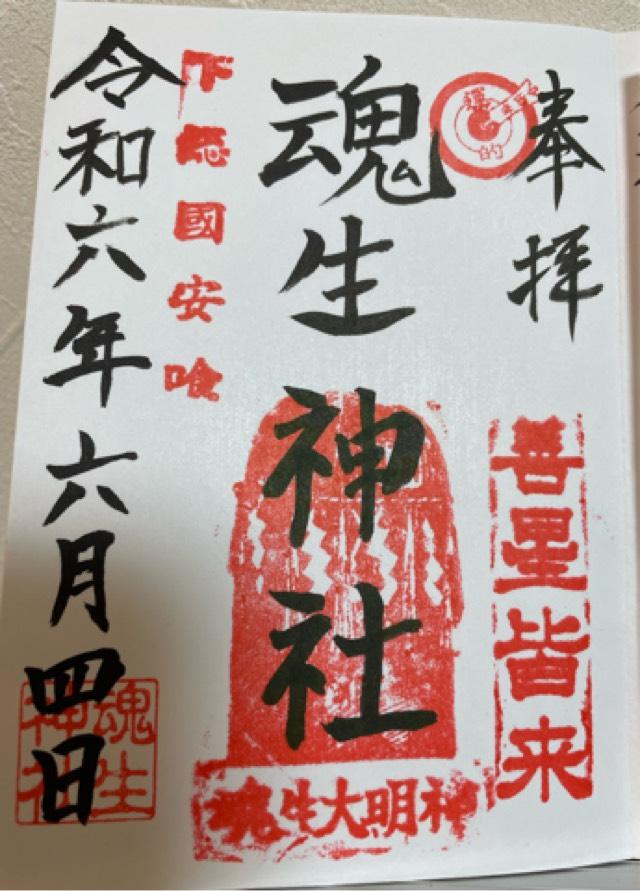 奉拝
善星皆来
的
魂生神社
魂生大明神
國安
令和六年六月四日
魂生
神社